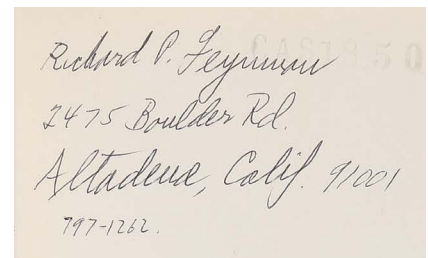 Richard P. Feynman
2475 Boulder Rd.
Altadena, Calif. 91001
797-1262.